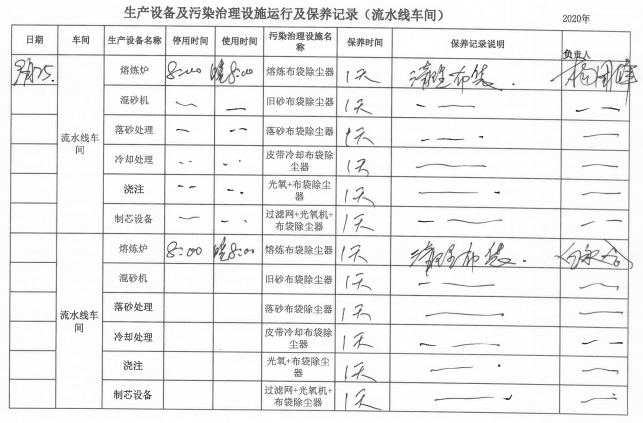 生产设备及污染治理设施运行及保养记录（流水线车间）
2020年
日期 车间 生产设备名称 停用时间 使用时间 污染治理设施名称 保养时间 保养记录说明 负责人
流水线车间
熔炼炉 8:00 晚8:00 熔炼布袋除尘器 1天 清理布袋.
混砂机 旧砂布袋除尘器 1天
落砂处理 落砂布袋除尘器 1天
冷却处理 皮带冷却布袋除尘器 1天
浇注 光氧+布袋除尘器 1天
制芯设备 过滤网+光氧机+布袋除尘器 1天
流水线车间
熔炼炉 8:00 晚8:00 熔炼布袋除尘器 1天 清理布袋.
混砂机 旧砂布袋除尘器 1天
落砂处理 落砂布袋除尘器 1天
冷却处理 皮带冷却布袋除尘器 1天
浇注 光氧+布袋除尘器 1天
制芯设备 过滤网+光氧机+布袋除尘器 1天